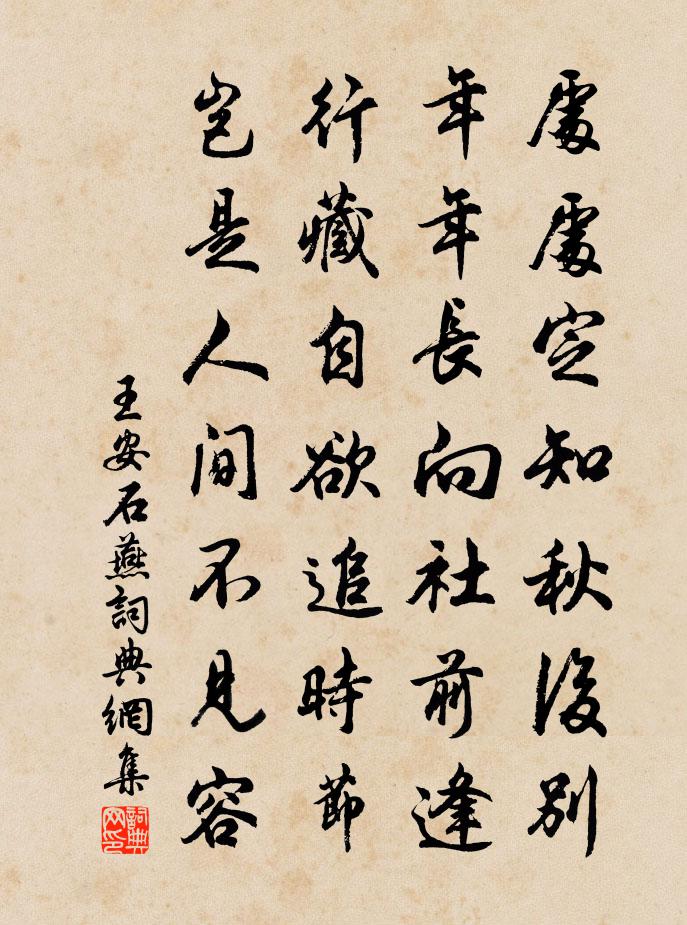 處處定知秋後別
年年長向社前逢
行藏自欲追時節
豈是人間不見容
王安石燕詞典網集
詞典网印